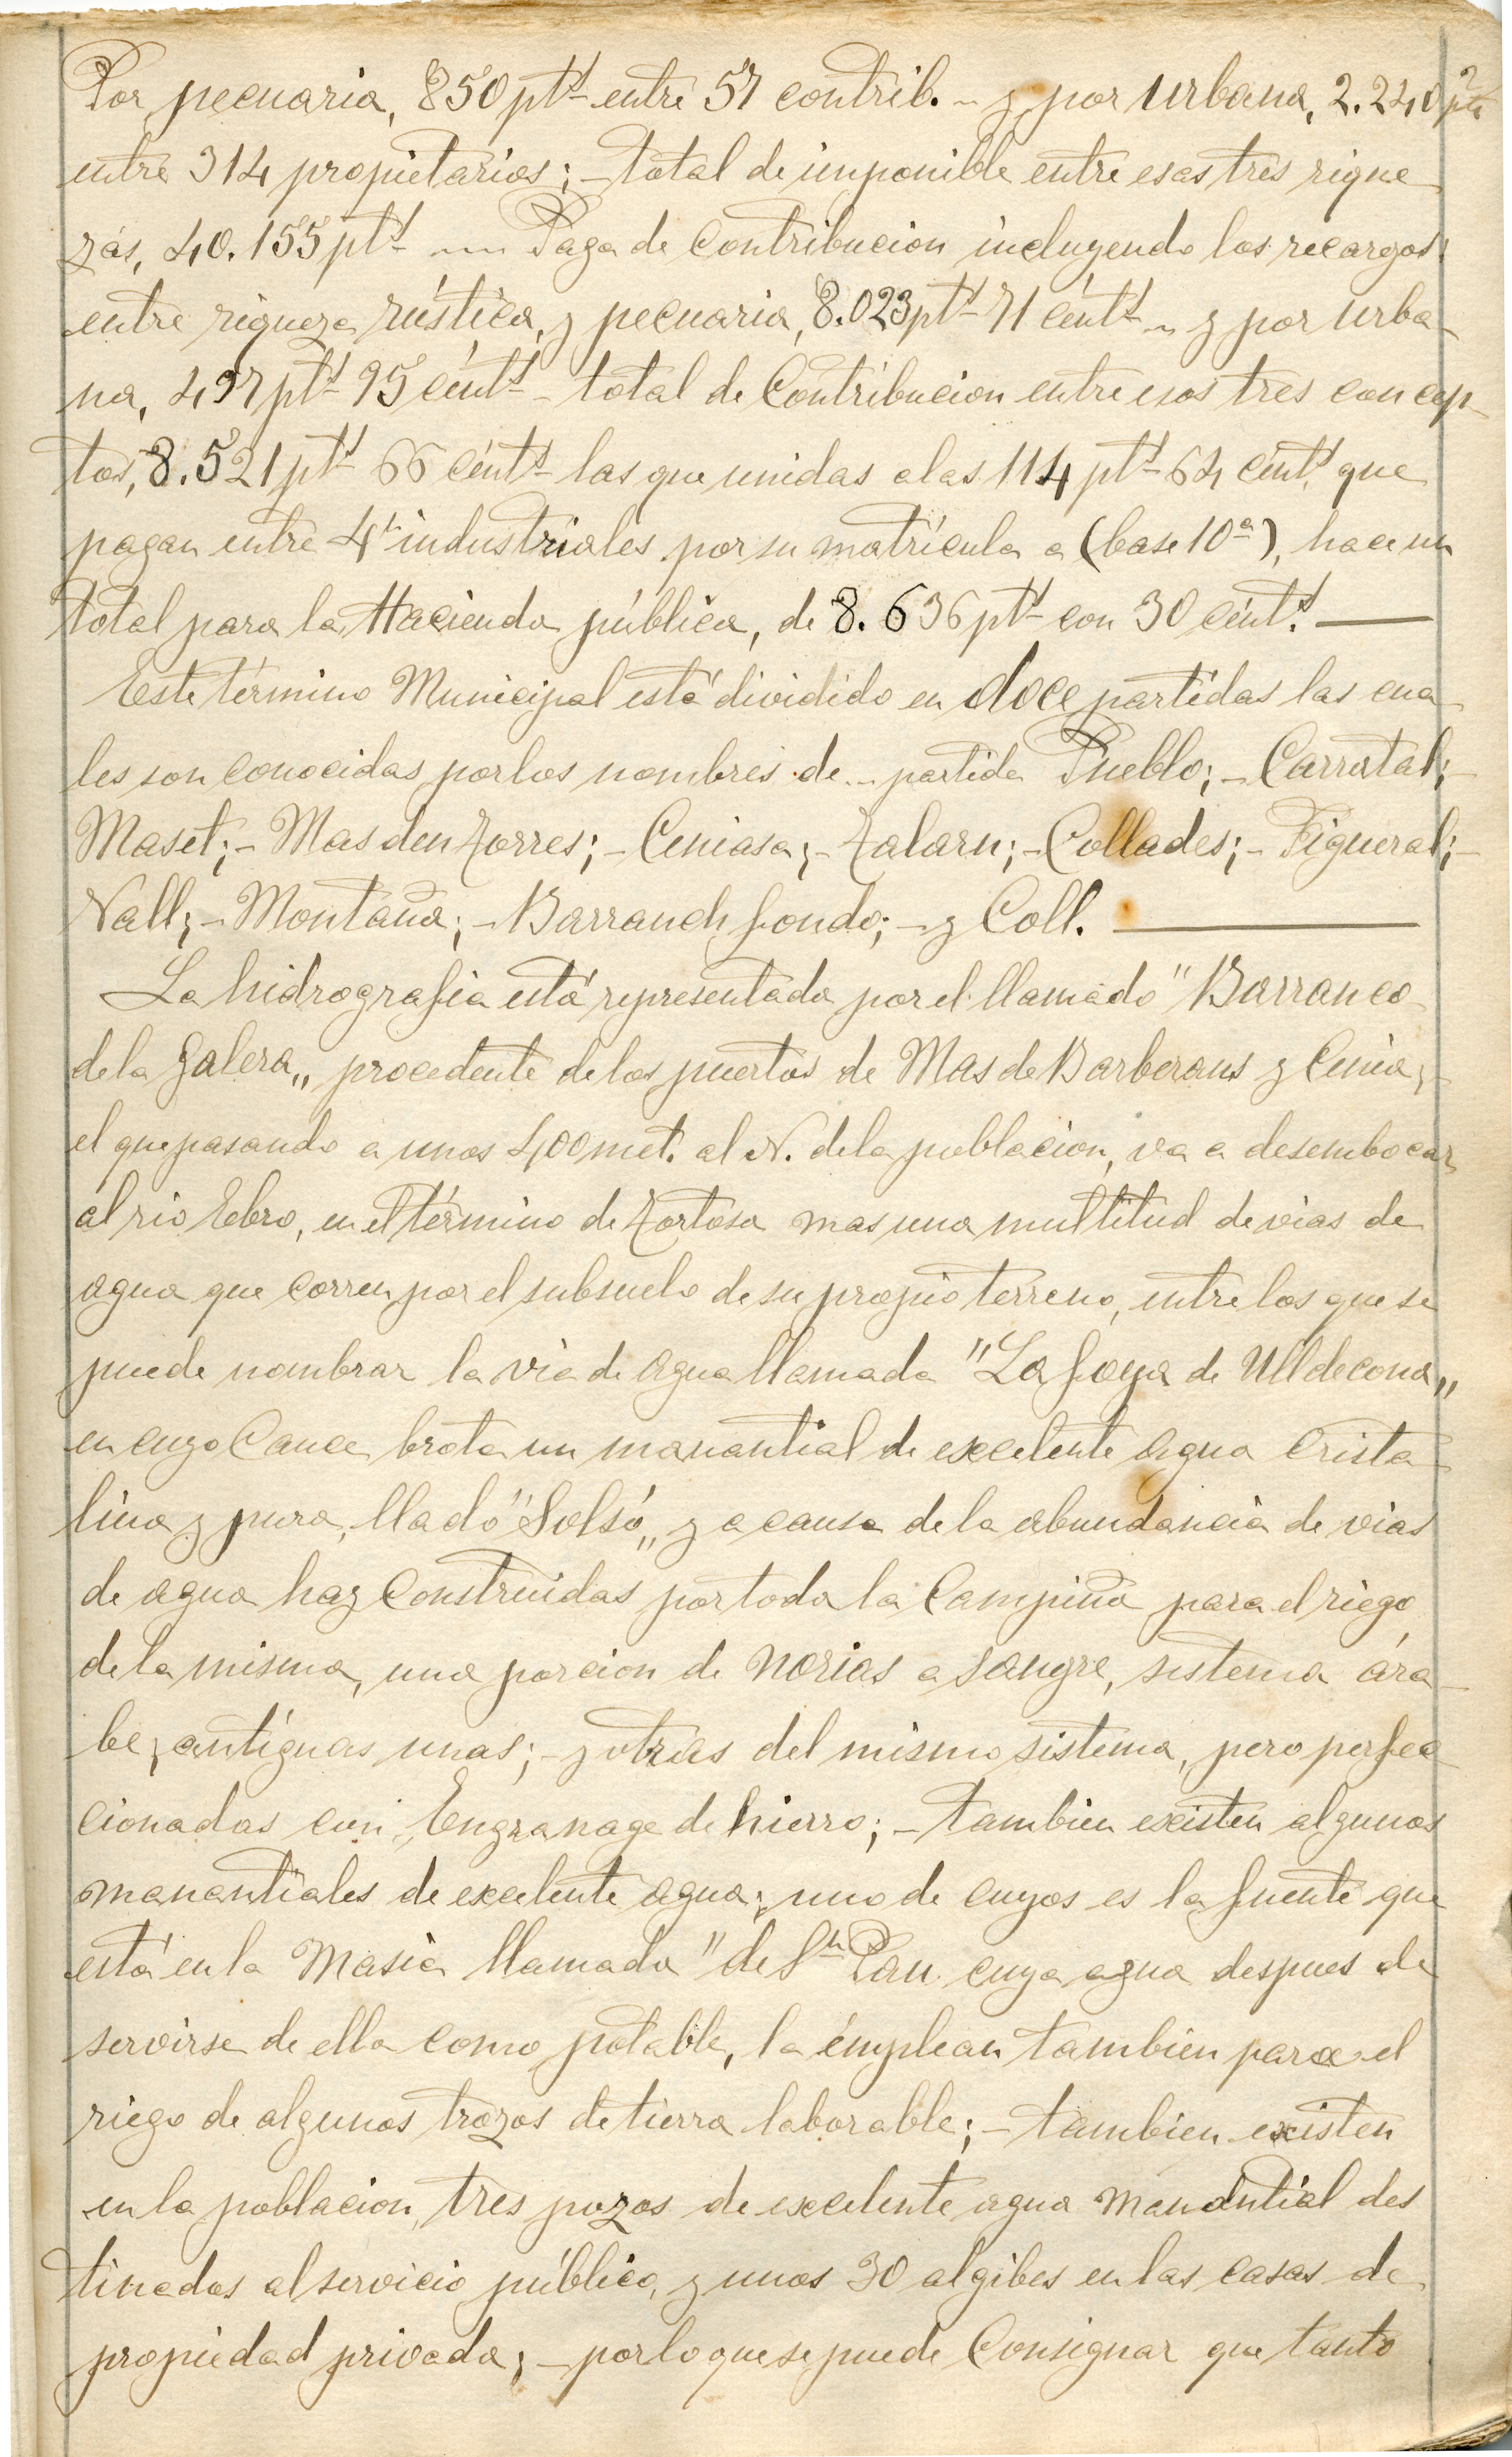 Por pecuaria, 850 ptˢ entre 57 contrib. - y por urbana, 2.240 ptˢ
entre 314 propietarios; - total de imponible entre esas tres rique
zas, 40.155 ptˢ - Paga de Contribucion incluyendo los recargos:
entre riqueza rústica, y pecuaria, 8.023 ptˢ 71 céntˢ - y por urba-
na, 497 ptˢ 95 céntˢ - total de Contribucion entre esos tres concep-
tos, 8.521 ptˢ 66 céntˢ las que unidas a las 114 ptˢ 64 céntˢ que
pagan entre 4 industriales por su matrícula a (base 10ª), hace un
total para la Hacienda pública, de 8.636 ptˢ con 30 céntˢ. —
Este término Municipal está dividido en doce partidas las cua-
les son conocidas por los nombres de - partida Pueblo; - Carrutal; -
Maset; - Mas den Torres; - Ceniasa; - Talarn; - Collades; - Figueral; -
Vall; - Montaña; - Barranch fondo; - y Coll. —
La hidrografia está representada por el llamado "Barranco
de la Galera„ procedente de los puertos de Mas de Barberans y Cenia; -
el que pasando a unos 400 met. al N. de la poblacion, va a desembocar
al rio Ebro, en el término de Tortosa mas una multitud de vias de
agua que corren por el subsuelo de su propio terreno, entre los que se
puede nombrar la via de agua llamada "La foya de Ulldecona„
en cuyo Cauce brota un manantial de excelente agua Crista-
lina y pura, lladó "Solsó„ y a causa de la abundancia de vias
de agua hay Construidas por toda la Campiña para el riego
de la misma, una porcion de norias a sangre, sistema ára-
be, antíguas unas; - y otras del mismo sistema, pero perfec
cionadas con Engranage de hierro; - tambien existen algunos
manantiales de excelente agua, uno de cuyos es la fuente que
está en la Masia llamada "de Sⁿ Pau cuya agua despues de
servirse de ella como potable, la emplean tambien para el
riego de algunos trozos de tierra laborable; - tambien existen
en la poblacion, tres pozos de excelente agua manantial des
tinados al servicio público, y unos 30 algibes en las casas de
propiedad privada; - por lo que se puede Consignar que tanto